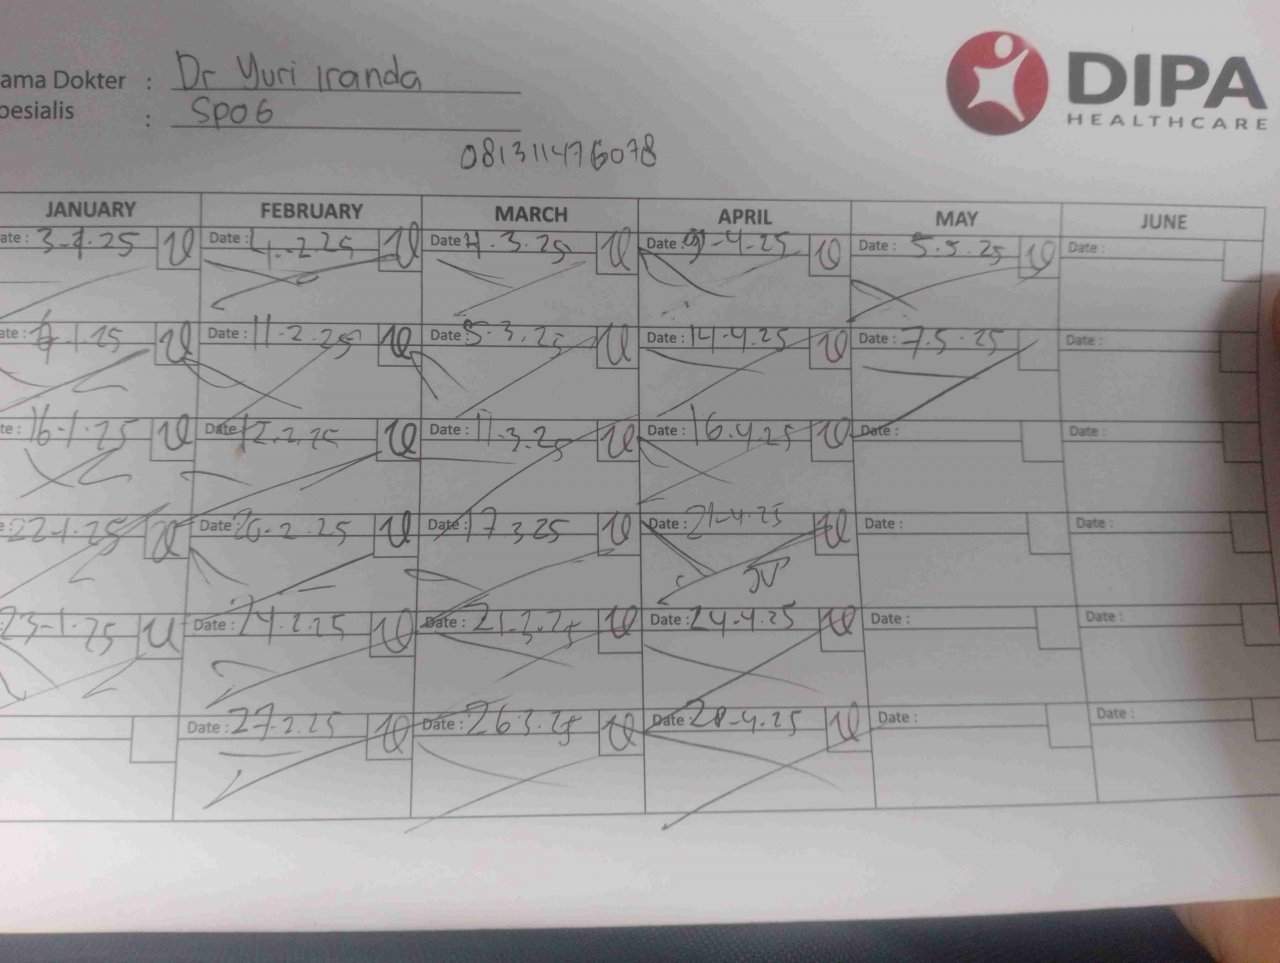 ama Dokter : Dr Yuri Iranda
pesialis : SpOG
DIPA
HEALTHCARE
081311476078
JANUARY FEBRUARY MARCH APRIL MAY JUNE
ate: 3-1-25 Date: 4.-2.25 Date: 4.3.25 Date: 9-4-25 Date: 5.5.25 Date:
ate: 1.25 Date: 11-2.25 Date: 5.3.25 Date: 14-4.25 Date: 7.5.25 Date:
te: 16-1.25 Date: 12.2.25 Date: 11.3.25 Date: 16.4.25 Date: Date:
e: 22-1.25 Date: 20-2.25 Date: 17 3 25 Date: 21-4-25 Date: Date:
23-1.25 Date: 24.2.25 Date: 21-3.25 Date: 24-4.25 Date: Date:
Date: 27-2.25 Date: 26 3.25 Date: 28-4.25 Date: Date: